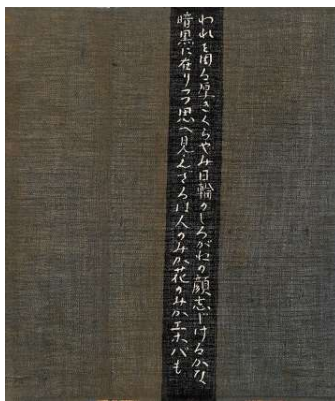 われを囲る厚きくらやみ日輪のしろがねの顔
暗黒に在りつつ思へ見えざるは人のみか花のみかエホバも